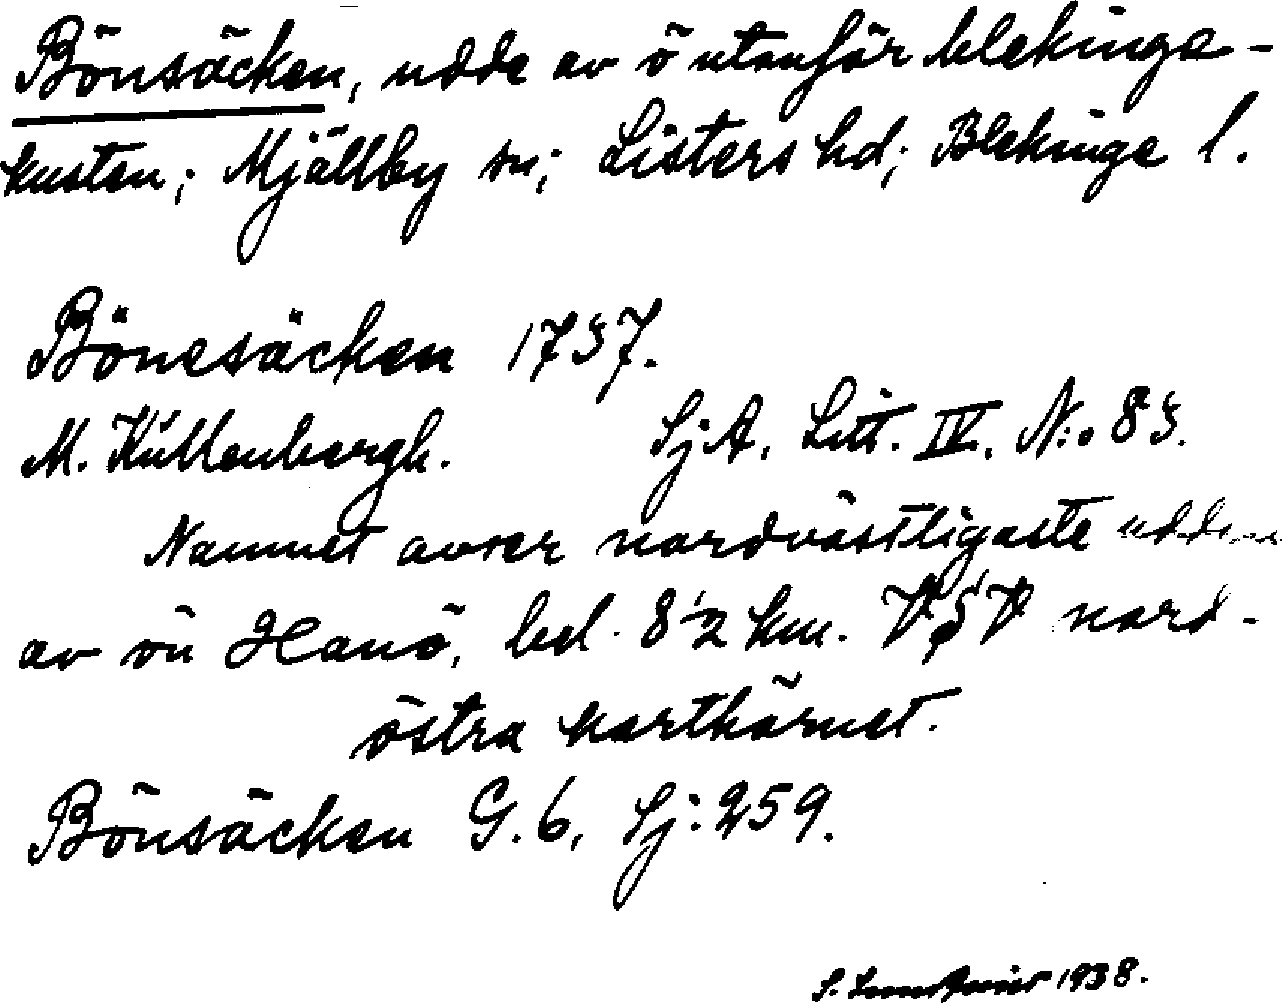 Bönsäcken, udde av ö utanför blekinge-
kusten; Mjällby sn; Listers hd; Blekinge l.
Bönesäcken 1737.
M. Kullenbergh. SjA, Litt. IV, N:o 83.
Namnet avser nordvästligaste udden
av ön Hanö, bel. 8½ km. VSV nord-
östra karthörnet.
Bönsäcken G.6, Sj:259.
S. 1938.